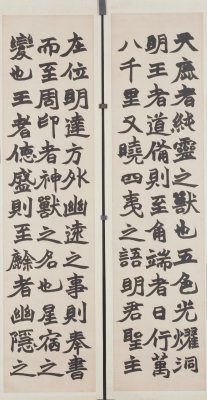 天鹿者純靈之獸也五色光耀洞
明王者道備則至角端者日行萬
八千里又曉四夷之語明君聖主
在位明達方外幽遠之事則奉書
而至周印者神獸之名也星宿之
變也王者德盛則至者幽隱之